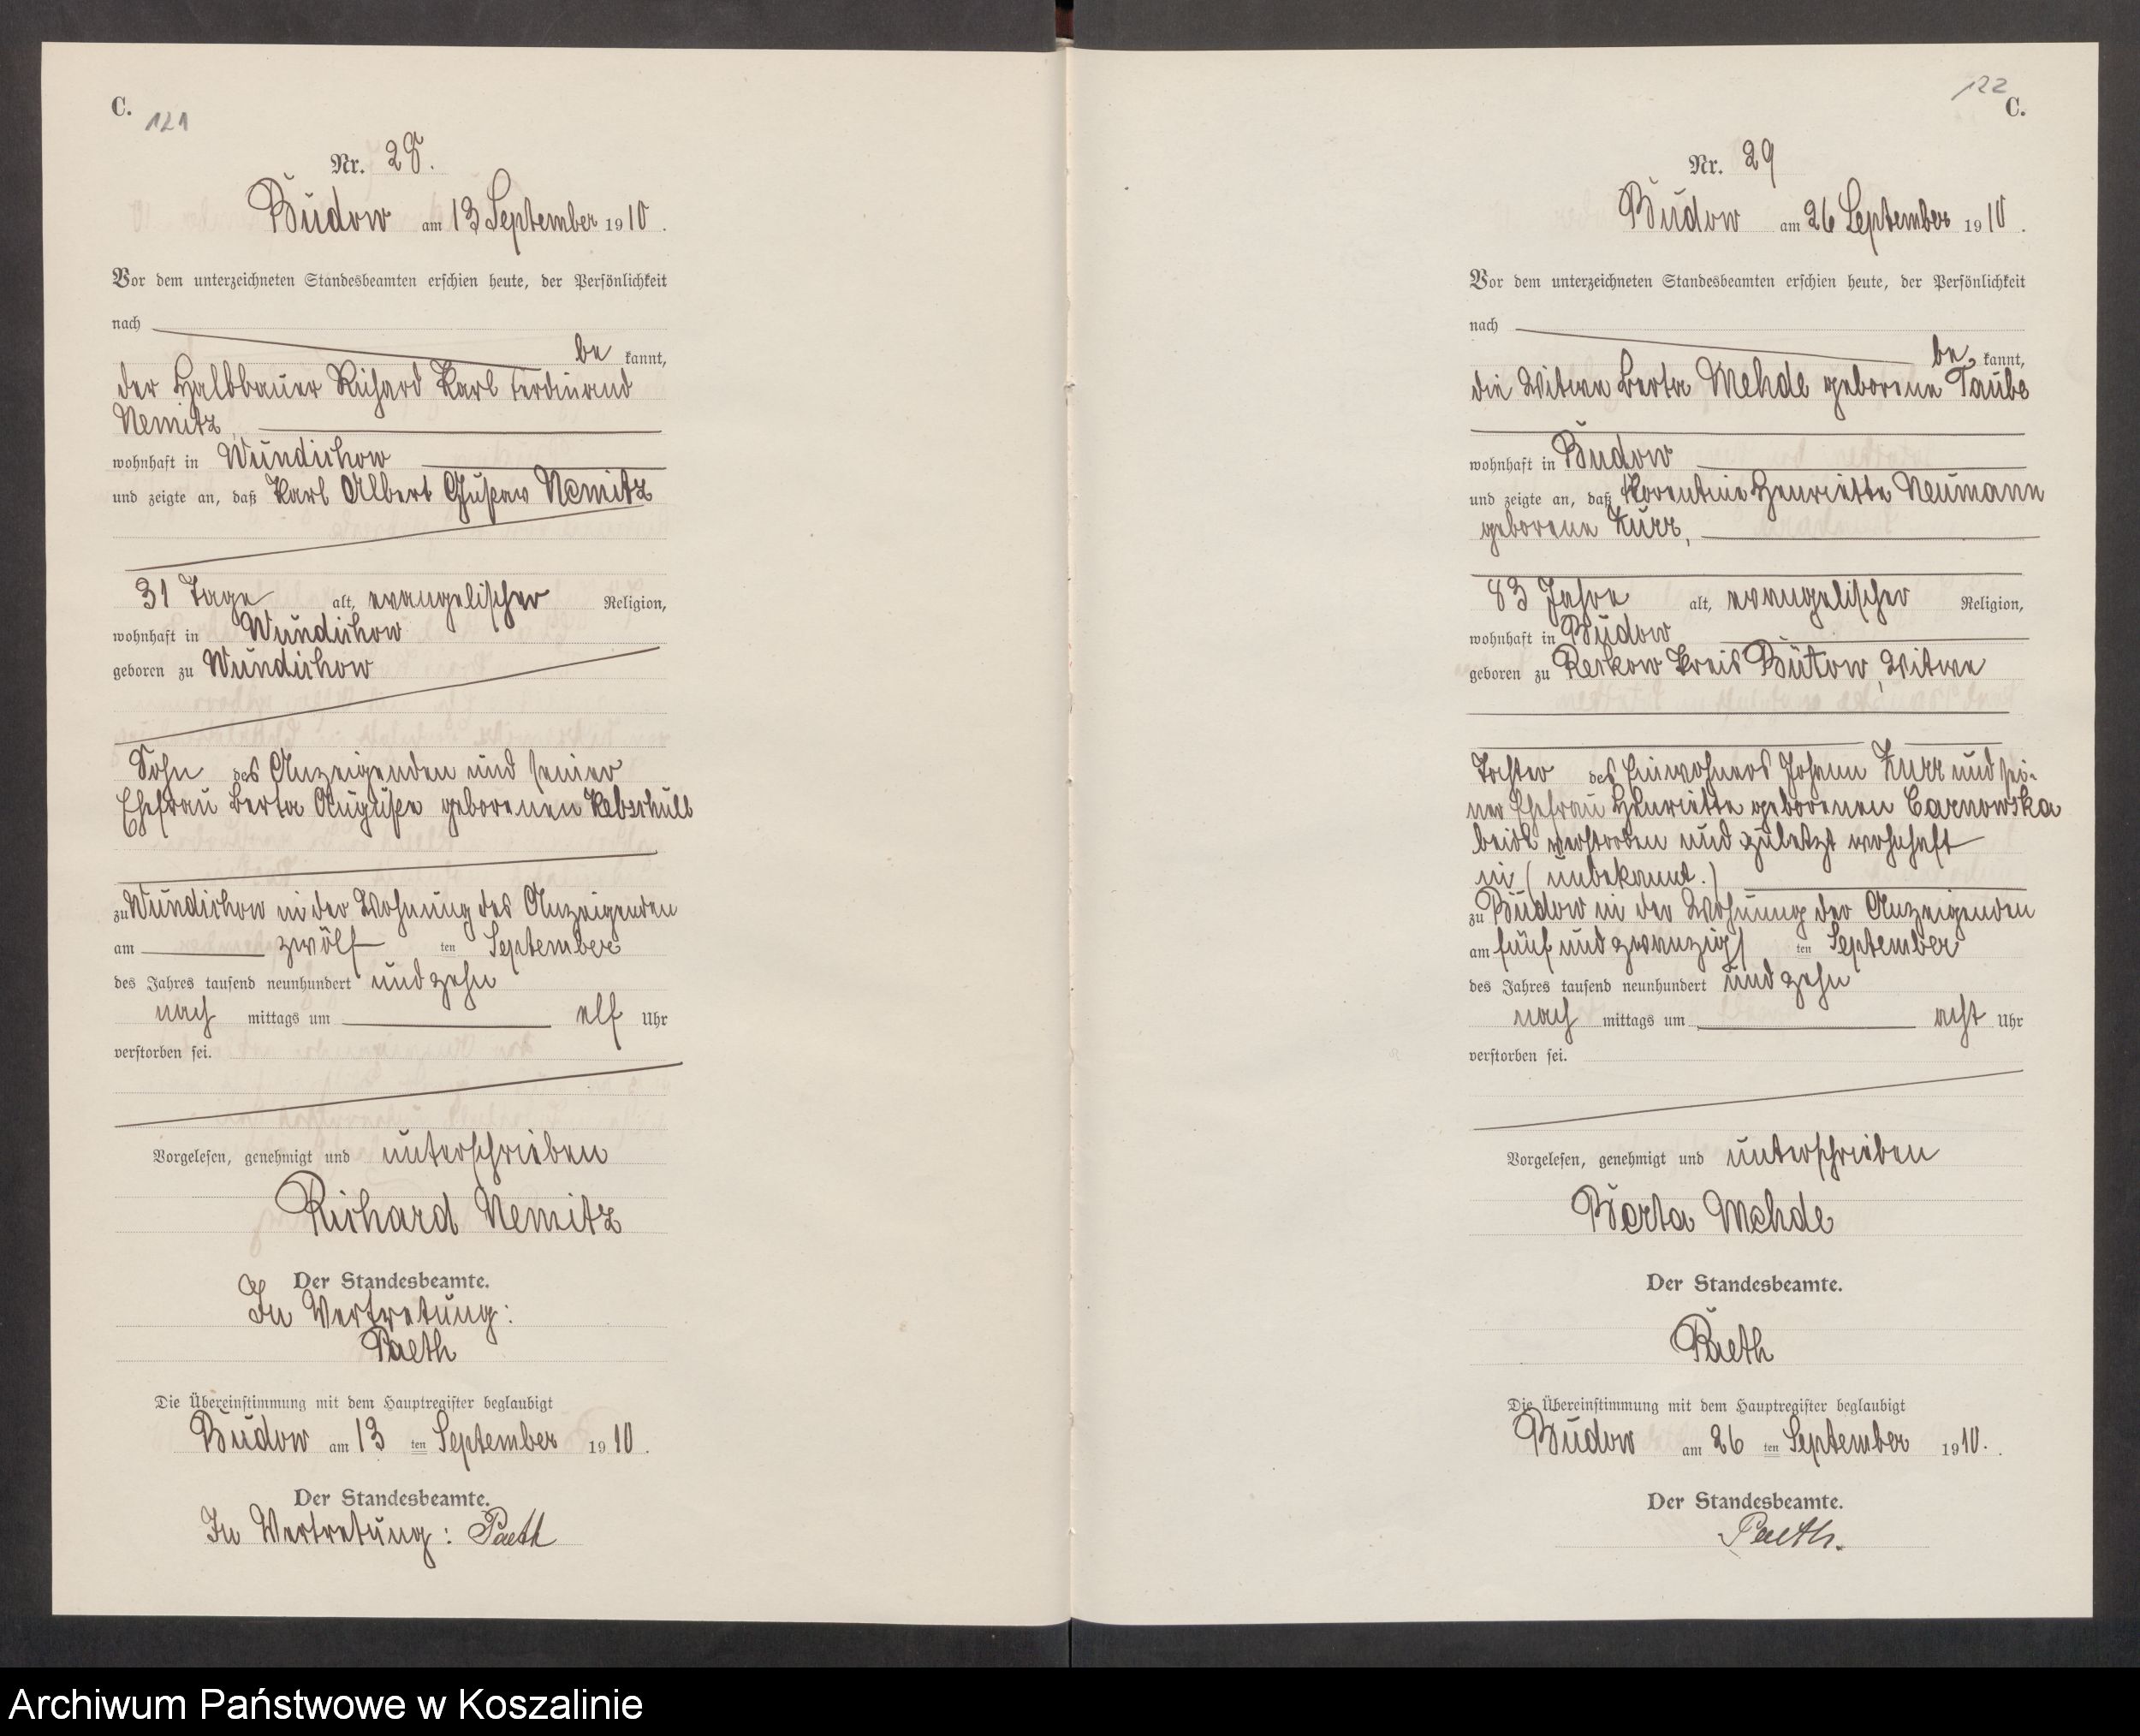 C.
121
Nr. 28.
Budow am 13 September 1910.
Vor dem unterzeichneten Standesbeamten erschien heute, der Persönlichkeit
nach
be kannt,
der Halbbauer Richard Karl Ferdinand
Nemitz,
wohnhaft in Wundichow
und zeigte an, daß Karl Albert Gustav Nemitz
31 Tage alt, evangelischer Religion,
wohnhaft in Wundichow
geboren zu Wundichow
Sohn des Anzeigenden und seiner
Ehefrau Berta Auguste geborenen Rebschull
zu Wundichow in der Wohnung des Anzeigenden
am zwölf ten September
des Jahres tausend neunhundert und zehn
nach mittags um elf Uhr
verstorben sei.
Vorgelesen, genehmigt und unterschrieben
Richard Nemitz
Der Standesbeamte.
In Vertretung:
Paeth
Die Übereinstimmung mit dem Hauptregister beglaubigt
Budow am 13 ten September 1910.
Der Standesbeamte.
In Vertretung: Paeth
122
C.
Nr. 29
Budow am 26 September 1910.
Vor dem unterzeichneten Standesbeamten erschien heute, der Persönlichkeit
nach
be kannt,
die Witwe Berta Mehde geborene Taube
wohnhaft in Budow
und zeigte an, daß Florentine Henriette Neumann
geborene Kurr,
83 Jahre alt, evangelischer Religion,
wohnhaft in Budow
geboren zu Reckow Kreis Bütow, Witwe
Tochter des Einwohners Johann Kurr und sei-
ner Ehefrau Henriette geborenen Carnowska
beide verstorben und zuletzt wohnhaft
in (unbekannt.)
zu Budow in der Wohnung der Anzeigenden
am fünf und zwanzigs ten September
des Jahres tausend neunhundert und zehn
nach mittags um acht Uhr
verstorben sei.
Vorgelesen, genehmigt und unterschrieben
Berta Mehde
Der Standesbeamte.
Paeth
Die Übereinstimmung mit dem Hauptregister beglaubigt
Budow am 26 ten September 1910.
Der Standesbeamte.
Paeth.
Archiwum Państwowe w Koszalinie